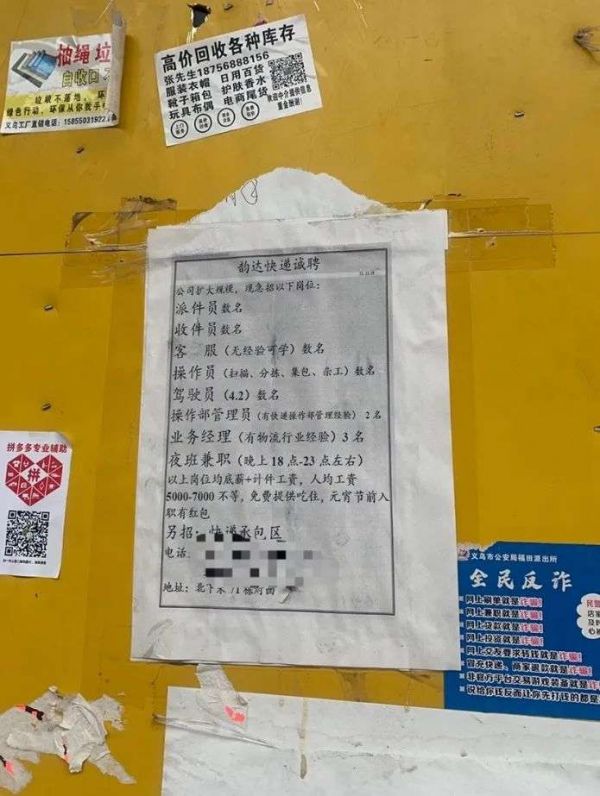 抽绳垃
自收回
垃圾不落地，环
绿色行动，环保从你我手
义乌工厂直销电话：15855031922
高价回收各种库存
张先生18756888156
服装衣帽 日用百货
鞋子箱包 护肤香水
玩具布偶 电商尾货
欢迎中介提供信息
重金酬谢！
韵达快递诚聘
公司扩大规模，现急招以下岗位：
派件员数名
收件员数名
客 服（无经验可学）数名
操作员（扫描、分拣、集包、杂工）数名
驾驶员（4.2）数名
操作部管理员（有快递操作部管理经验）2名
业务经理（有物流行业经验）3名
夜班兼职（晚上18点-23点左右）
以上岗位均底薪+计件工资，人均工资
5000-7000不等，免费提供吃住，元宵节前入
职有红包
另招：快递承包区
电话：
地址：北下朱 71栋对面
拼多多专业辅助
拼
义乌市公安局福田派出所
全民反诈
网上刷单就是诈骗！
网上兼职就是诈骗！
网上贷款就是诈骗！
网上投资就是诈骗！
网上交友要求转钱就是诈骗！
冒充快递、商家退款就是诈骗！
非官方平台交易游戏装备就是诈
说给你钱反而让你先打钱的都是